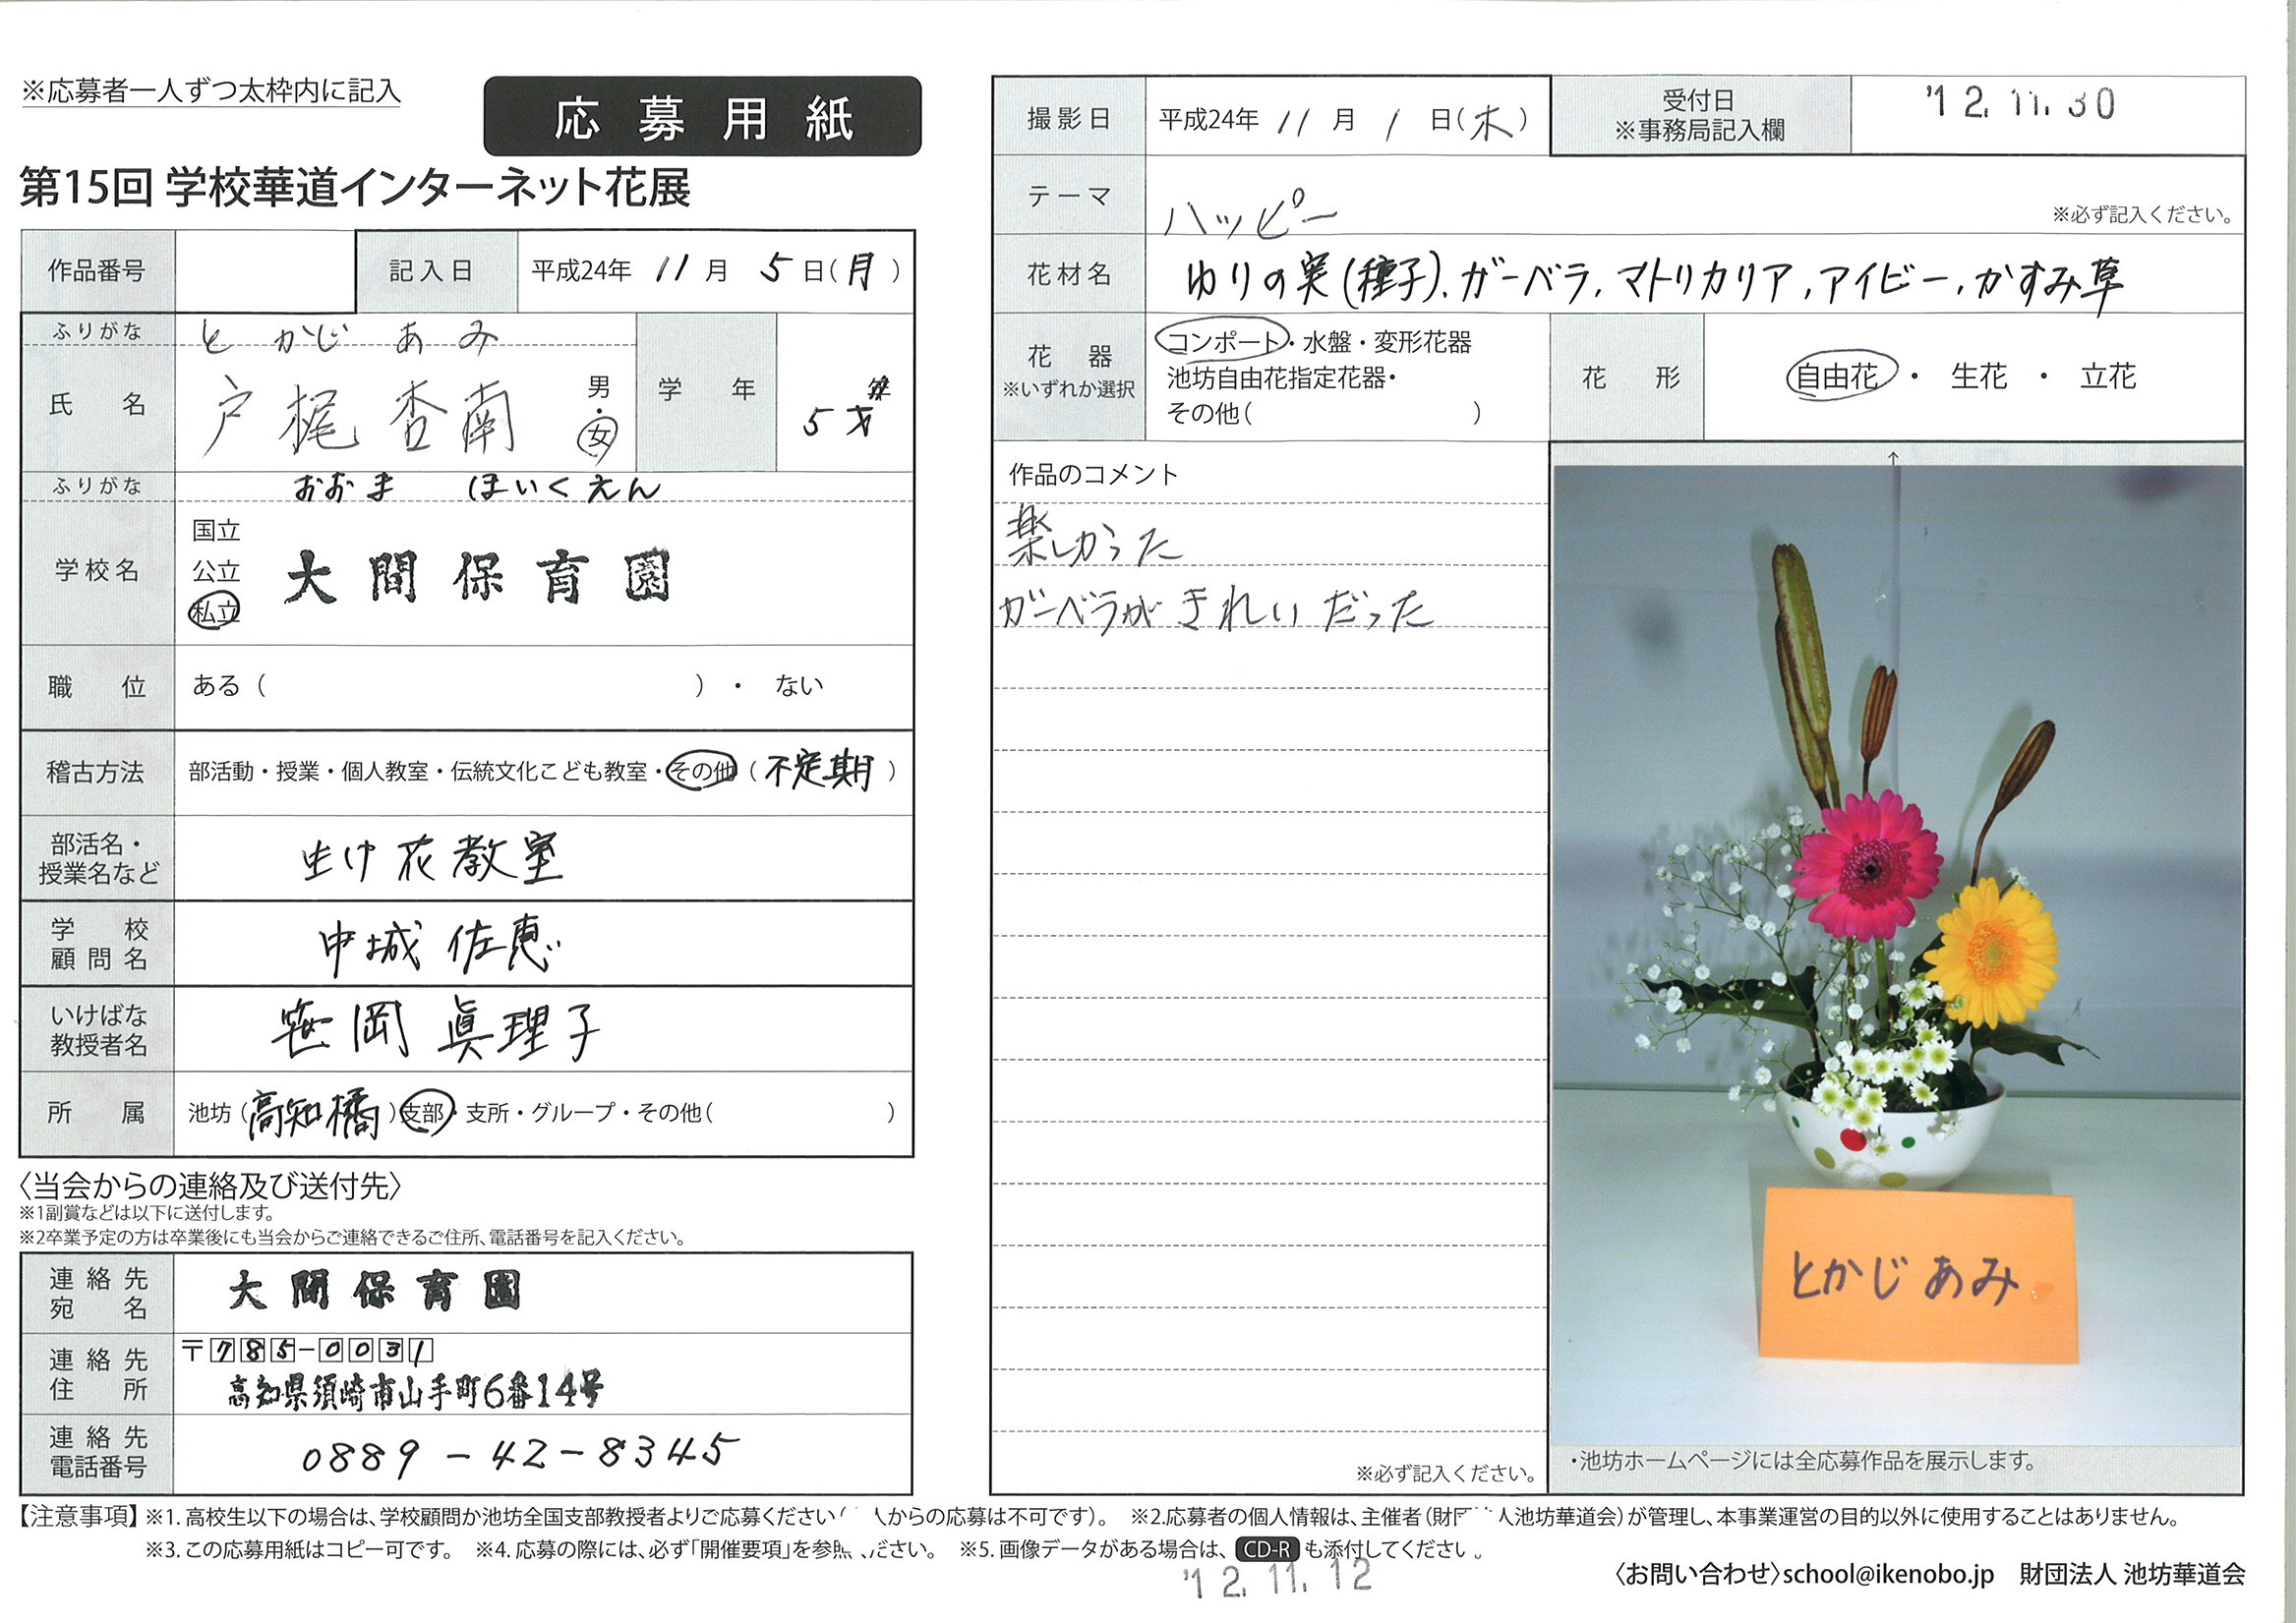 ※応募者一人ずつ太枠内に記入
応募用紙
第15回 学校華道インターネット花展
作品番号 記入日 平成24年 11月 5日(月)
ふりがな とかじ あみ
氏名 戸梶 杏南 男・女 学年 5才
ふりがな おおま ほいくえん
学校名 国立 公立 私立 大間保育園
職位 ある( )・ない
稽古方法 部活動・授業・個人教室・伝統文化こども教室・その他(不定期)
部活名・授業名など 生け花教室
学校顧問名 中城 佐恵
いけばな教授者名 笹岡 眞理子
所属 池坊(高知橘)支部・支所・グループ・その他( )
〈当会からの連絡及び送付先〉
※1副賞などは以下に送付します。
※2卒業予定の方は卒業後にも当会からご連絡できるご住所、電話番号を記入ください。
連絡先宛名 大間保育園
連絡先住所 〒785-0031
高知県須崎市山手町6番14号
連絡先電話番号 0889-42-8345
撮影日 平成24年 11月 1日(木) 受付日 ※事務局記入欄 '12.11.30
テーマ ハッピー ※必ず記入ください。
花材名 ゆりの実(種子)、ガーベラ,マトリカリア,アイビー,かすみ草
花器 ※いずれか選択 コンポート・水盤・変形花器
池坊自由花指定花器・
その他( )
花形 自由花・生花・立花
作品のコメント
楽しかった
ガーベラがきれいだった
※必ず記入ください。
↑
とかじ あみ
・池坊ホームページには全応募作品を展示します。
【注意事項】※1.高校生以下の場合は、学校顧問か池坊全国支部教授者よりご応募ください( 人からの応募は不可です)。 ※2.応募者の個人情報は、主催者(財団 人池坊華道会)が管理し、本事業運営の目的以外に使用することはありません。
※3.この応募用紙はコピー可です。 ※4.応募の際には、必ず「開催要項」を参照ください。 ※5.画像データがある場合は、CD-Rも添付してください。
'12.11.12
〈お問い合わせ〉school@ikenobo.jp 財団法人 池坊華道会